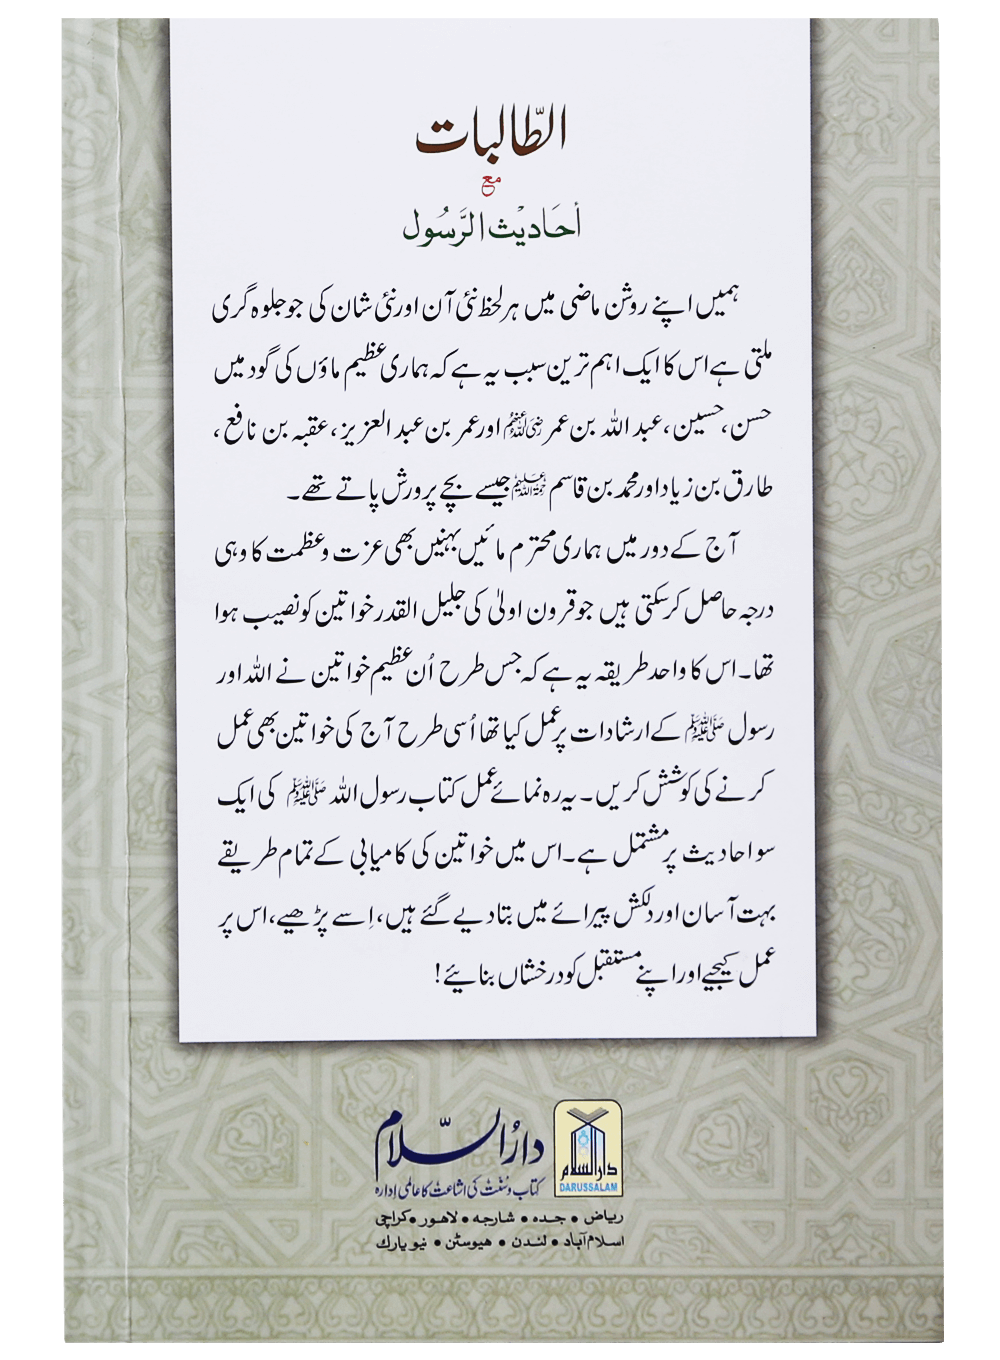 الطّالبات
مع
أحَادیْث الرَّسُول
ہمیں اپنے روشن ماضی میں ہر لحظہ نئی آن اور نئی شان کی جو جلوہ گری
ملتی ہے اس کا ایک اہم ترین سبب یہ ہے کہ ہماری عظیم ماؤں کی گود میں
حسن، حسین، عبد اللہ بن عمر رضی اللہ عنہم اور عمر بن عبد العزیز، عقبہ بن نافع،
طارق بن زیاد اور محمد بن قاسم رحمۃ اللہ علیہم جیسے بچے پرورش پاتے تھے۔
آج کے دور میں ہماری محترم مائیں بہنیں بھی عزت و عظمت کا وہی
درجہ حاصل کر سکتی ہیں جو قرون اولیٰ کی جلیل القدر خواتین کو نصیب ہوا
تھا۔ اس کا واحد طریقہ یہ ہے کہ جس طرح اُن عظیم خواتین نے اللہ اور
رسول ﷺ کے ارشادات پر عمل کیا تھا اُسی طرح آج کی خواتین بھی عمل
کرنے کی کوشش کریں۔ یہ رہ نمائے عمل کتاب رسول اللہ ﷺ کی ایک
سو احادیث پر مشتمل ہے۔ اس میں خواتین کی کامیابی کے تمام طریقے
بہت آسان اور دلکش پیرائے میں بتا دیے گئے ہیں، اِسے پڑھیے، اس پر
عمل کیجیے اور اپنے مستقبل کو درخشاں بنائیے!
دارُالسّلام
کتاب و سُنّت کی اشاعت کا عالمی ادارہ
دارالسلام
DARUSSALAM
ریاض • جدہ • شارجہ • لاہور • کراچی
اسلام آباد • لندن • ہیوسٹن • نیو یارک